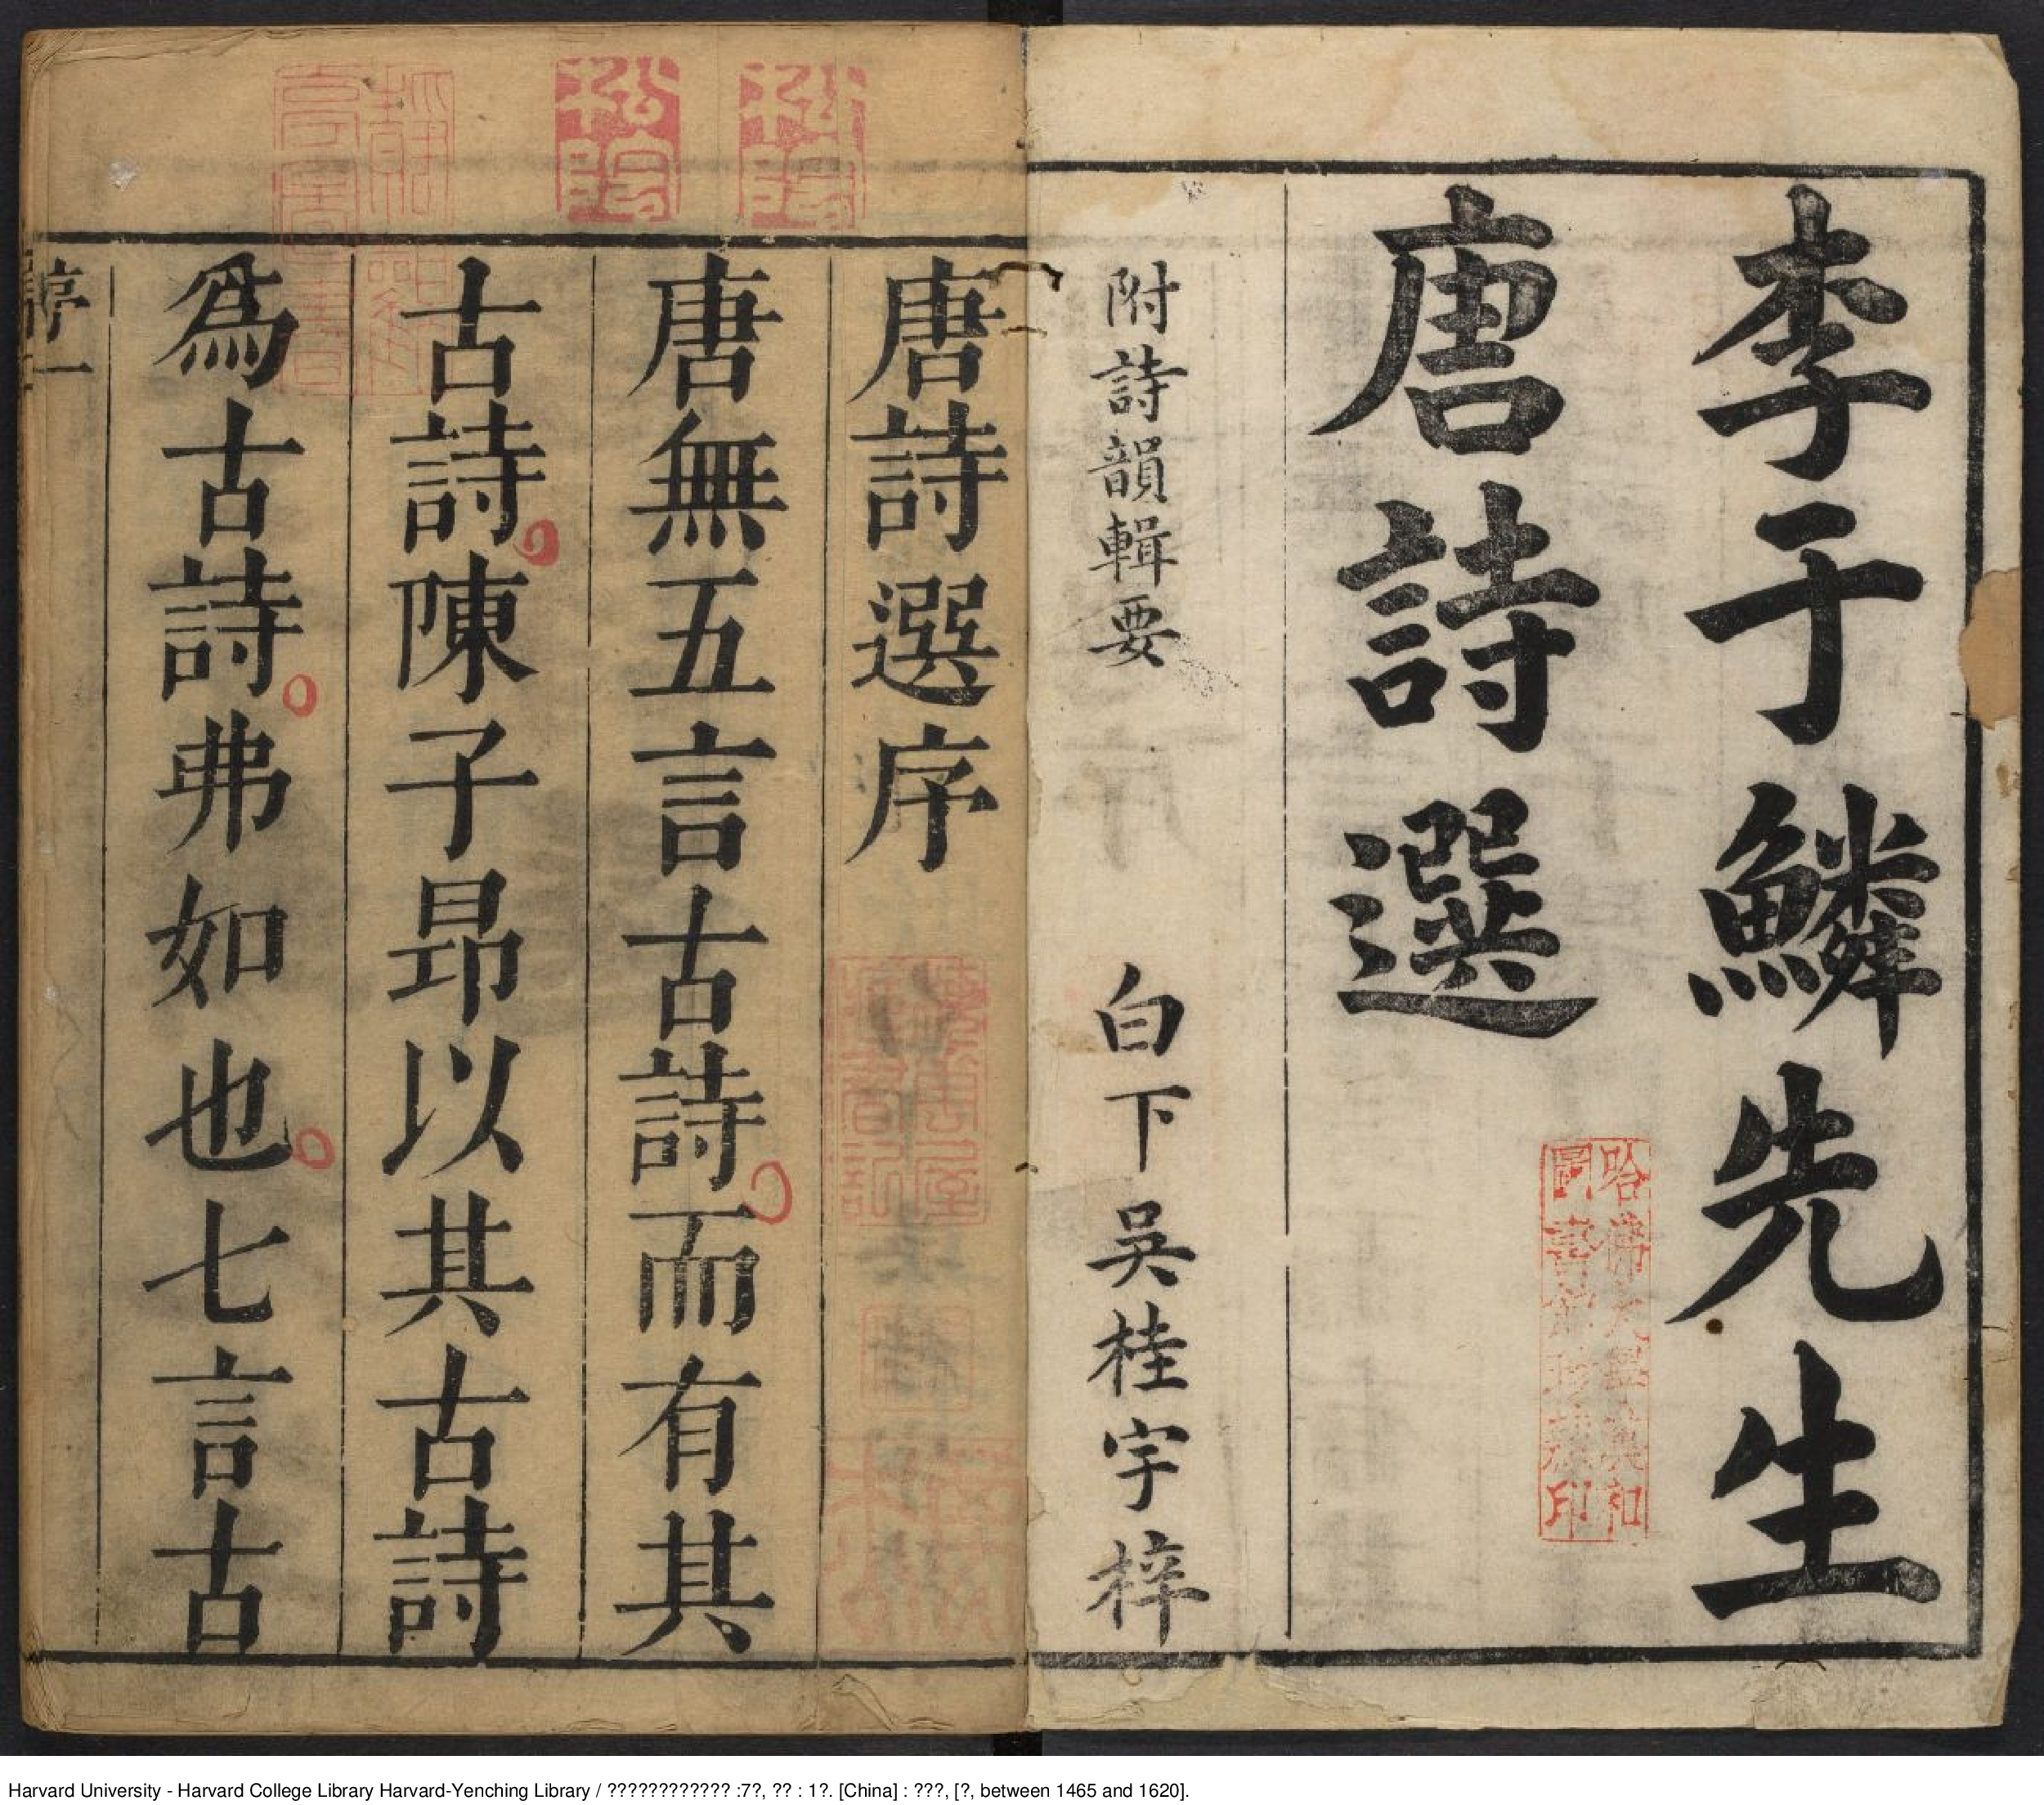 李于鱗先生
唐詩選
附詩韻輯要 白下吳桂宇梓
哈佛大學漢和
圖書館珍藏印
唐詩選序
唐無五言古詩而有其
古詩陳子昂以其古詩
爲古詩弗如也七言古
序 一
松陰
松陰
Harvard University - Harvard College Library Harvard-Yenching Library / ???????????? :7?, ?? : 1?. [China] : ???, [?, between 1465 and 1620].